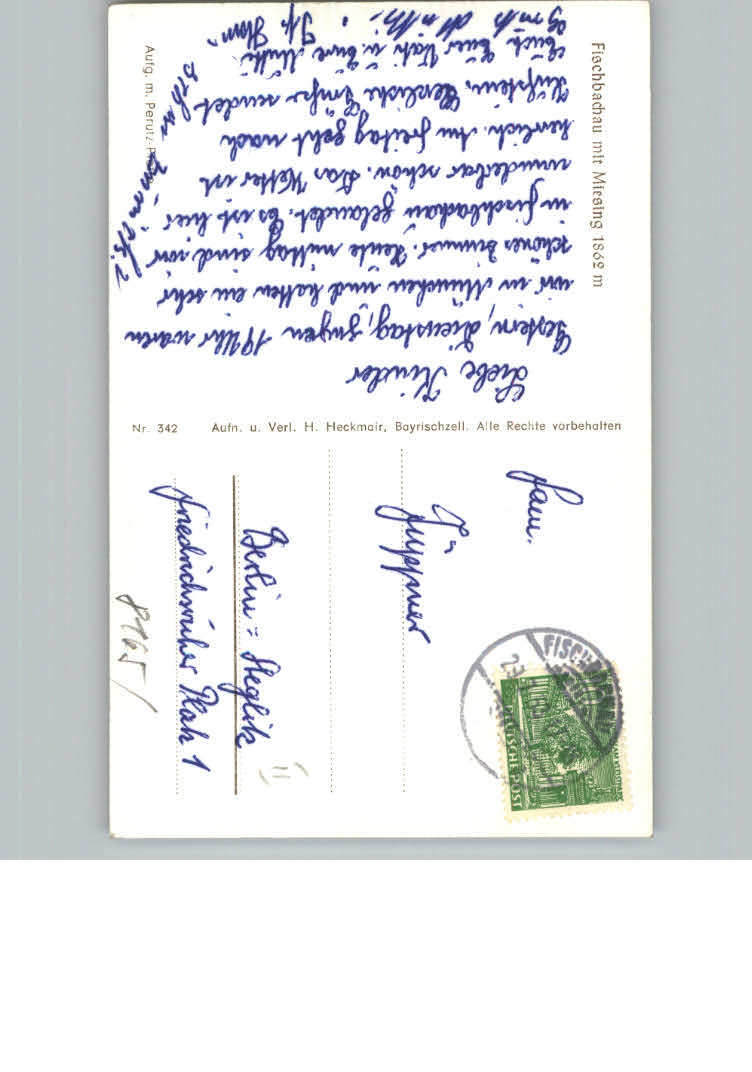 Fischbachau mit Miesing 1862 m
Liebe Kinder
Gestern, Dienstag, gegen 19 Uhr waren
wir in München und hatten ein sehr
schönes Zimmer. Heute mittag sind wir
in Fischbachau gelandet. Es ist hier
wunderbar schön. Das Wetter ist
herrlich. Am Freitag geht nach
Kufstein. Herzliche Grüße sendet
Euch Euer Vati u. Eure Mutti.
Aufg. m. Perutz
Nr. 342 Aufn. u. Verl. H. Heckmair, Bayrischzell. Alle Rechte vorbehalten
Fam.
Berlin = Steglitz
Friedrichsruher Platz 1
8165/
DEUTSCHE POST